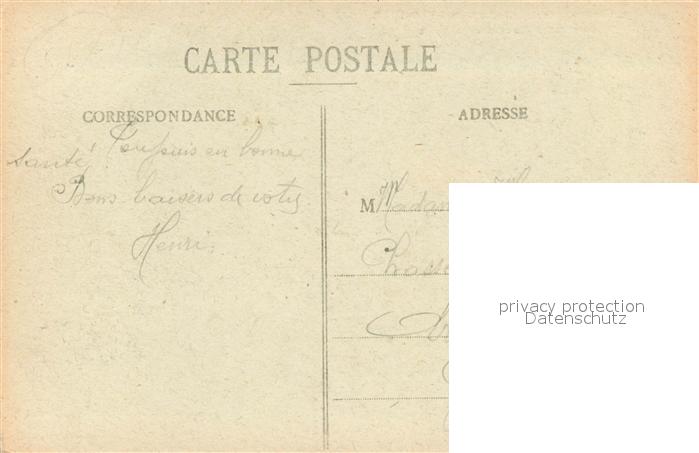 CARTE POSTALE
CORRESPONDANCE
ADRESSE
Toujours en bonne
santé
Bons baisers de votre
Henri
M Madam
privacy protection
Datenschutz